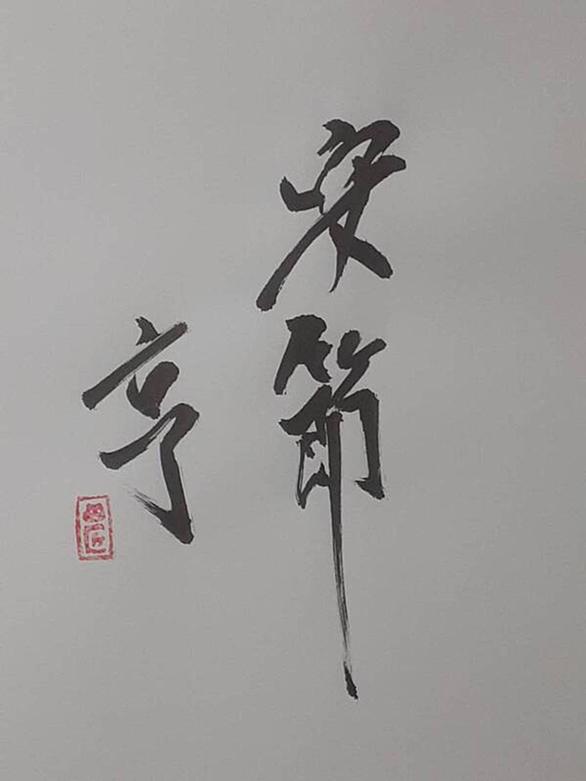 安節
亨